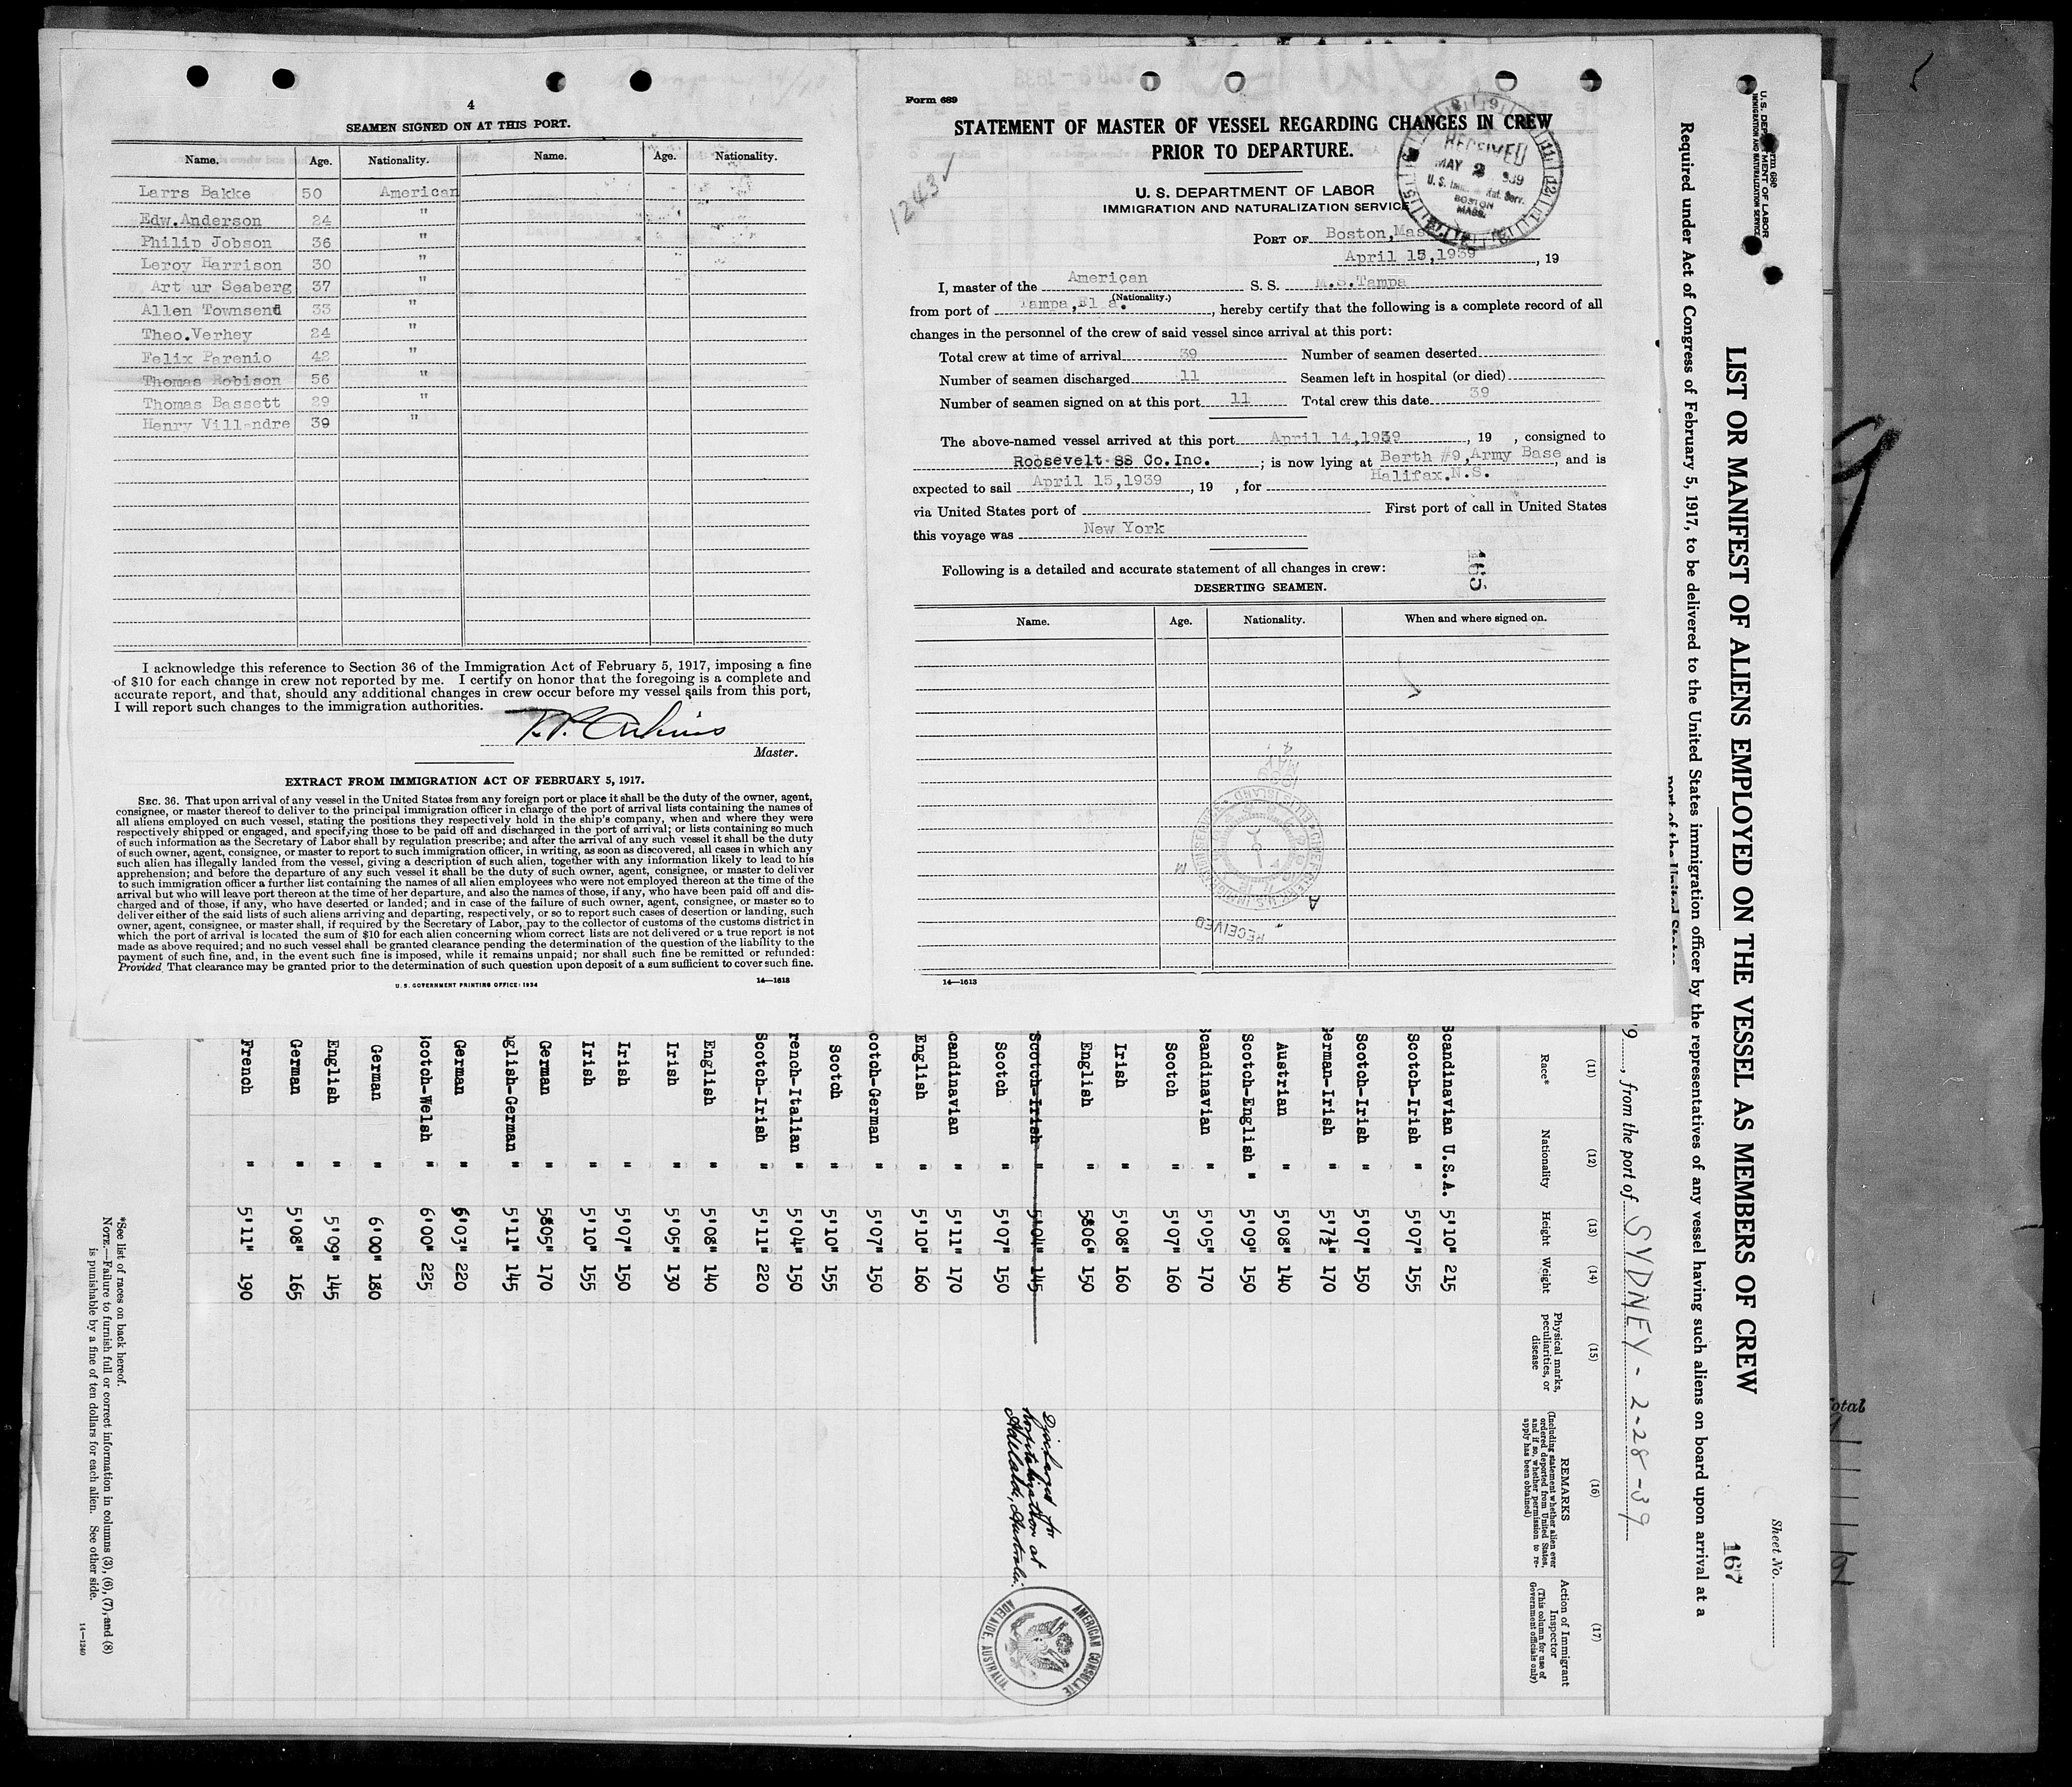 4
SEAMEN SIGNED ON AT THIS PORT.
Name. Age. Nationality. Name. Age. Nationality.
Larrs Bakke 50 American
Edw.Anderson 24 "
Philip Jobson 36 "
Leroy Harrison 30 "
Art ur Seaberg 37 "
Allen Townsend 33 "
Theo.Verhey 24 "
Felix Parenio 42 "
Thomas Robison 56 "
Thomas Bassett 29 "
Henry Vill ndre 39 "
I acknowledge this reference to Section 36 of the Immigration Act of February 5, 1917, imposing a fine
of $10 for each change in crew not reported by me. I certify on honor that the foregoing is a complete and
accurate report, and that, should any additional changes in crew occur before my vessel sails from this port,
I will report such changes to the immigration authorities.
Master.
EXTRACT FROM IMMIGRATION ACT OF FEBRUARY 5, 1917.
SEC. 36. That upon arrival of any vessel in the United States from any foreign port or place it shall be the duty of the owner, agent,
consignee, or master thereof to deliver to the principal immigration officer in charge of the port of arrival lists containing the names of
all aliens employed on such vessel, stating the positions they respectively hold in the ship's company, when and where they were
respectively shipped or engaged, and specifying those to be paid off and discharged in the port of arrival; or lists containing so much
of such information as the Secretary of Labor shall by regulation prescribe; and after the arrival of any such vessel it shall be the duty
of such owner, agent, consignee, or master to report to such immigration officer, in writing, as soon as discovered, all cases in which any
such alien has illegally landed from the vessel, giving a description of such alien, together with any information likely to lead to his
apprehension; and before the departure of any such vessel it shall be the duty of such owner, agent, consignee, or master to deliver
to such immigration officer a further list containing the names of all alien employees who were not employed thereon at the time of the
arrival but who will leave port thereon at the time of her departure, and also the names of those, if any, who have been paid off and dis-
charged and of those, if any, who have deserted or landed; and in case of the failure of such owner, agent, consignee, or master so to
deliver either of the said lists of such aliens arriving and departing, respectively, or so to report such cases of desertion or landing, such
owner, agent, consignee, or master shall, if required by the Secretary of Labor, pay to the collector of customs of the customs district in
which the port of arrival is located the sum of $10 for each alien concerning whom correct lists are not delivered or a true report is not
made as above required; and no such vessel shall be granted clearance pending the determination of the question of the liability to the
payment of such fine, and, in the event such fine is imposed, while it remains unpaid; nor shall such fine be remitted or refunded:
Provided That clearance may be granted prior to the determination of such question upon deposit of a sum sufficient to cover such fine.
U. S. GOVERNMENT PRINTING OFFICE: 1934 14—1613
Form 689
STATEMENT OF MASTER OF VESSEL REGARDING CHANGES IN CREW
PRIOR TO DEPARTURE.
1243
RECEIVED
MAY 2 1939
BOSTON
MASS.
U. S. DEPARTMENT OF LABOR
IMMIGRATION AND NATURALIZATION SERVICE
PORT OF Boston,Mas
April 15,1939, 19
I, master of the American S. S. M.S.Tampa
(Nationality.)
from port of Tampa,Fl a., hereby certify that the following is a complete record of all
changes in the personnel of the crew of said vessel since arrival at this port:
Total crew at time of arrival 39 Number of seamen deserted
Number of seamen discharged 11 Seamen left in hospital (or died)
Number of seamen signed on at this port 11 Total crew this date 39
The above-named vessel arrived at this port April 14,1939, 19 , consigned to
Roosevelt SS Co.Inc. ; is now lying at Berth #9,Army Base, and is
expected to sail April 15,1939, 19 , for Halifax.N.S.
via United States port of First port of call in United States
this voyage was New York
Following is a detailed and accurate statement of all changes in crew:
165
DESERTING SEAMEN.
Name. Age. Nationality. When and where signed on.
RECEIVED
MAY 4
14—1613
U. S. DEPARTMENT OF LABOR
IMMIGRATION AND NATURALIZATION SERVICE
Sheet No.
LIST OR MANIFEST OF ALIENS EMPLOYED ON THE VESSEL AS MEMBERS OF CREW
167
Required under Act of Congress of February 5, 1917, to be delivered to the United States immigration officer by the representatives of any vessel having such aliens on board upon arrival at a
port of the United States
9, from the port of SYDNEY - 2-28-39
(11) (12) (13) (14) (15) (16) (17)
Race* Nationality Height Weight Physical marks, peculiarities, or disease
REMARKS
(Including statement whether alien ever ordered deported from United States, and if so, whether permission to re-apply has been obtained)
Action of Immigrant Inspector
(This column for use of Government officials only)
Scandinavian U.S.A. 5'10" 215
Scotch-Irish " 5'07" 155
Scotch-Irish " 5'07" 150
German-Irish " 5'7½" 170
Austrian " 5'08" 140
Scotch-English " 5'09" 150
Scandinavian " 5'05" 170
Scotch " 5'07" 160
Irish " 5'08" 160
English " 5'06" 150
Scotch-Irish " 5'04" 145 Discharged for hospitalization at Adelaide, Australia.
Scotch " 5'07" 150
candinavian " 5'11" 170
English " 5'10" 160
cotch-German " 5'07" 150
Scotch " 5'10" 155
rench-Italian " 5'04" 150
Scotch-Irish " 5'11" 220
English " 5'08" 140
Irish " 5'05" 130
Irish " 5'07" 150
Irish " 5'10" 155
German " 5'05" 170
nglish-German " 5'11" 145
German " 6'03" 220
Scotch-Welsh " 6'00" 225
German " 6'00" 180
English " 5'09" 145
German " 5'08" 165
French " 5'11" 190
AMERICAN CONSULATE
ADELAIDE, AUSTRALIA.
*See list of races on back hereof.
NOTE.—Failure to furnish full or correct information in columns (3), (6), (7), and (8)
is punishable by a fine of ten dollars for each alien. See other side.
14—1240
otal